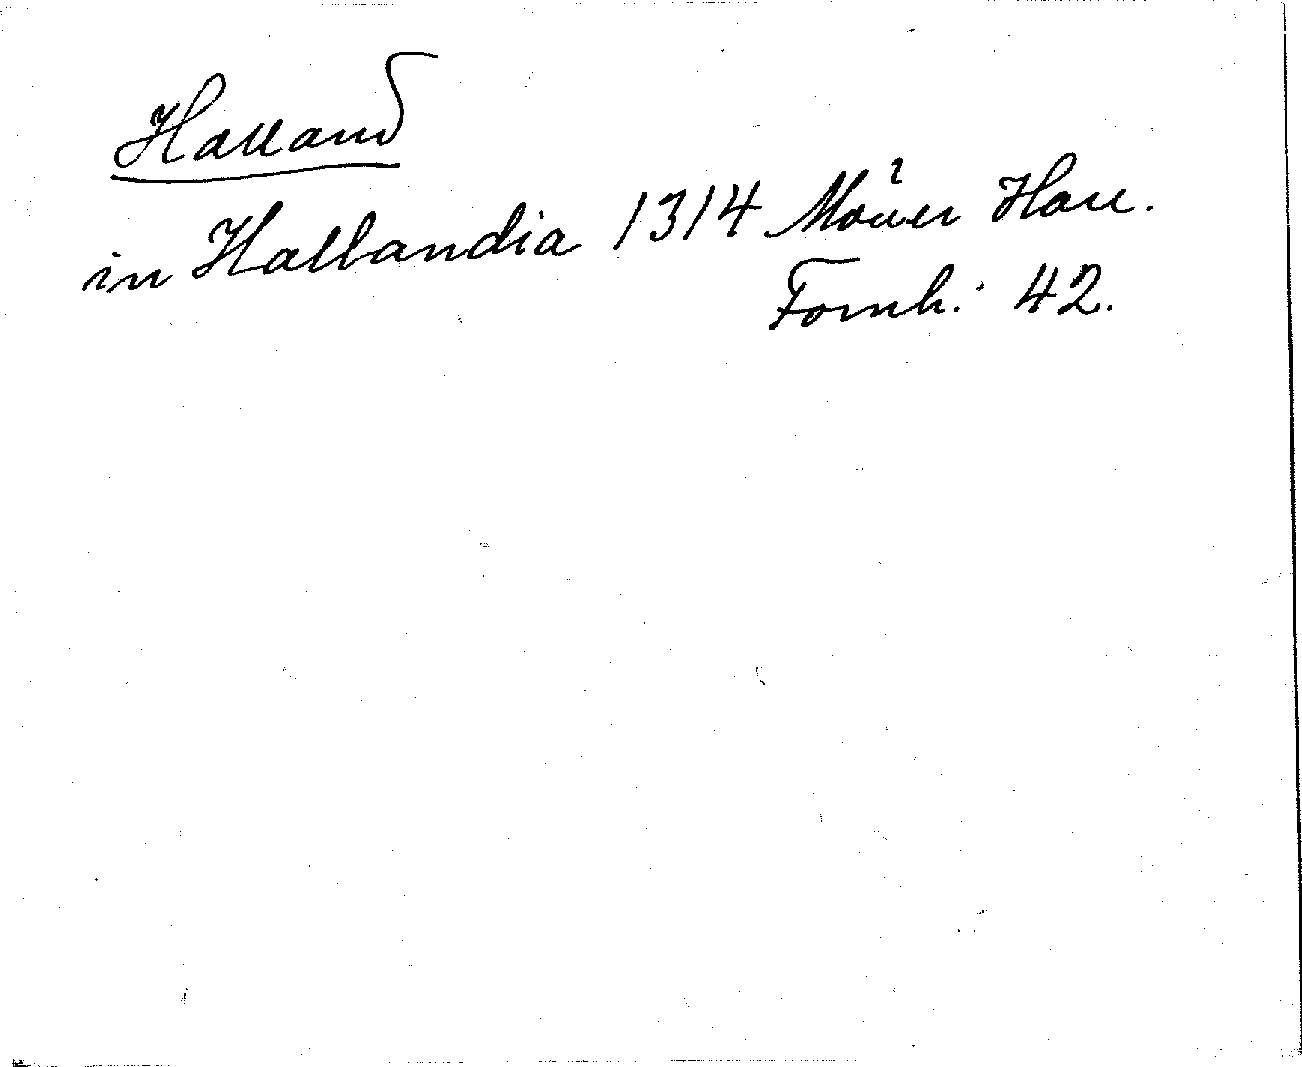 Halland
in Hallandia 1314 Möller Hall.
Fornh.: 42.